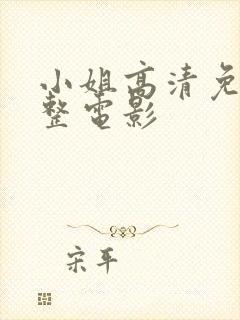 小姐高清免
整电影
宋平